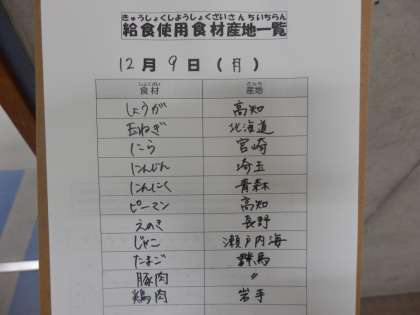 きゅうしょくしようしょくざいさんちいちらん
給食使用食材産地一覧
12月9日(月)
しょくざい さんち
食材 産地
しょうが 高知
玉ねぎ 北海道
にら 宮崎
にんじん 埼玉
にんにく 青森
ピーマン 高知
えのき 長野
じゃこ 瀬戸内海
たまご 群馬
豚肉 〃
鶏肉 岩手